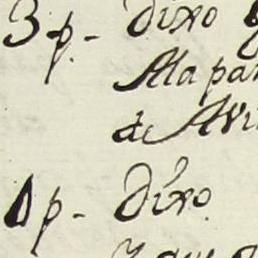 3 p. Dixo
Ala par
de Avi
1 p. Dixo